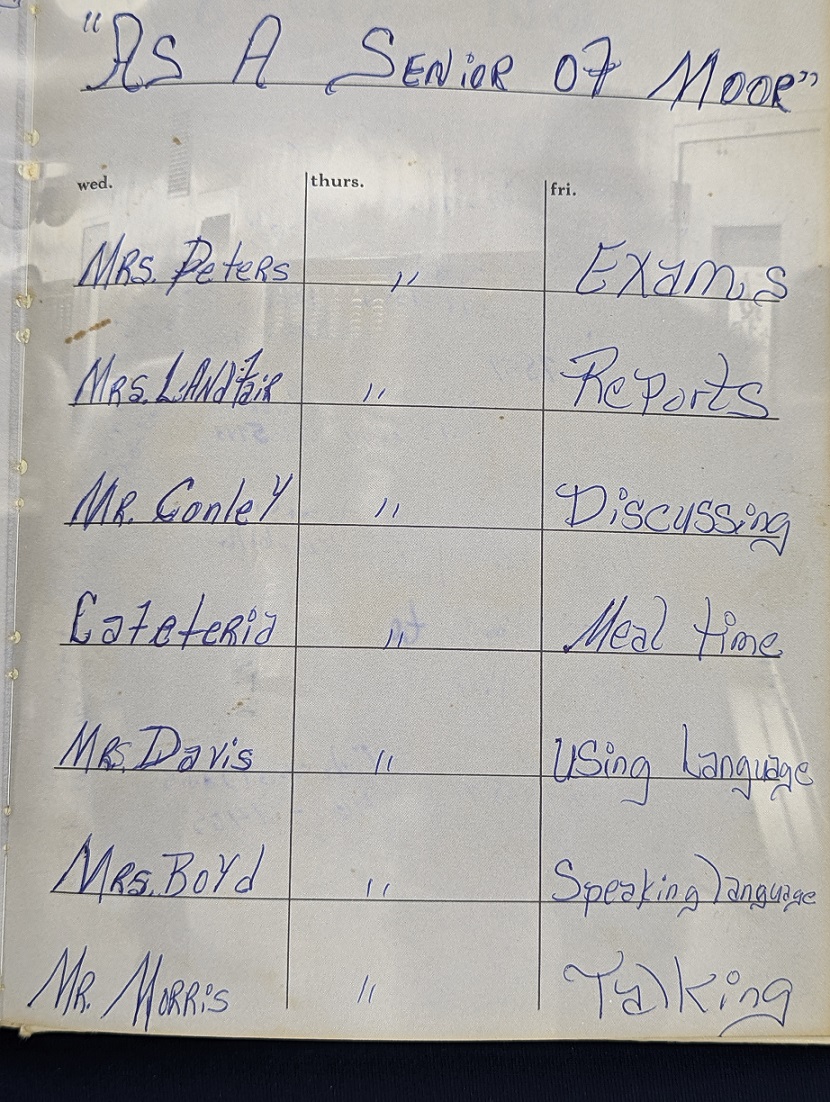 "As A Senior Of Moor"
wed. thurs. fri.
Mrs. Peters " Exams
Mrs. Landfair " Reports
Mr. Conley " Discussing
Cafeteria " Meal time
Mrs. Davis " Using Language
Mrs. Boyd " Speaking language
Mr. Morris " Talking